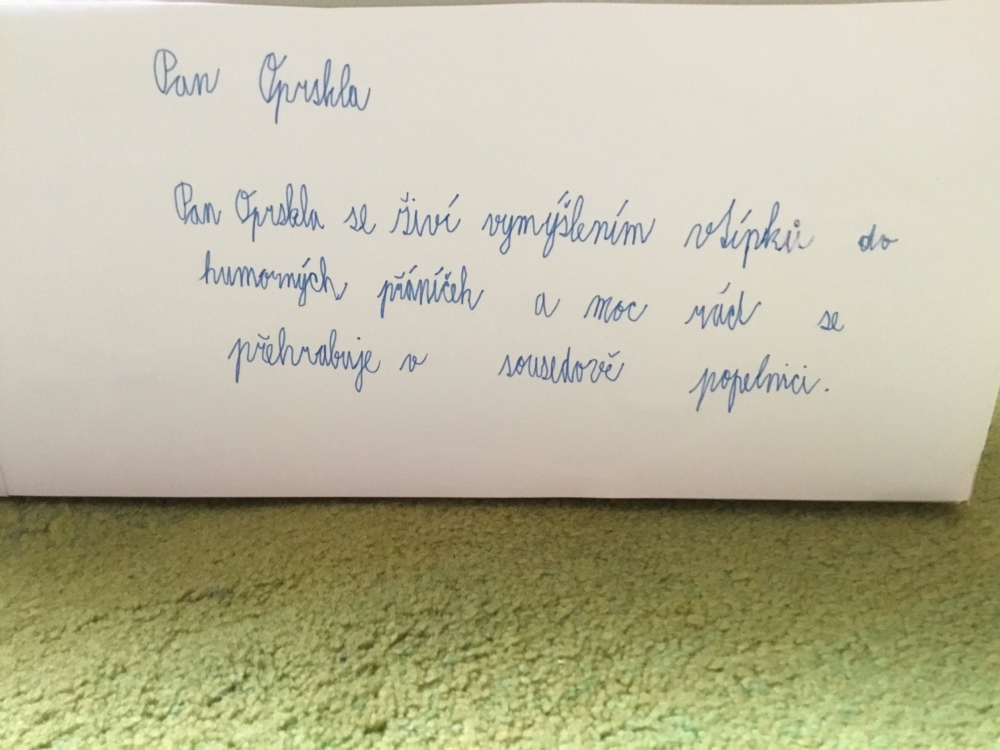 Pan Oprskla
Pan Oprskla se živí vymýšlením vtípků do
humorných přáníček a moc rád se
přehrabuje v sousedově popelnici.